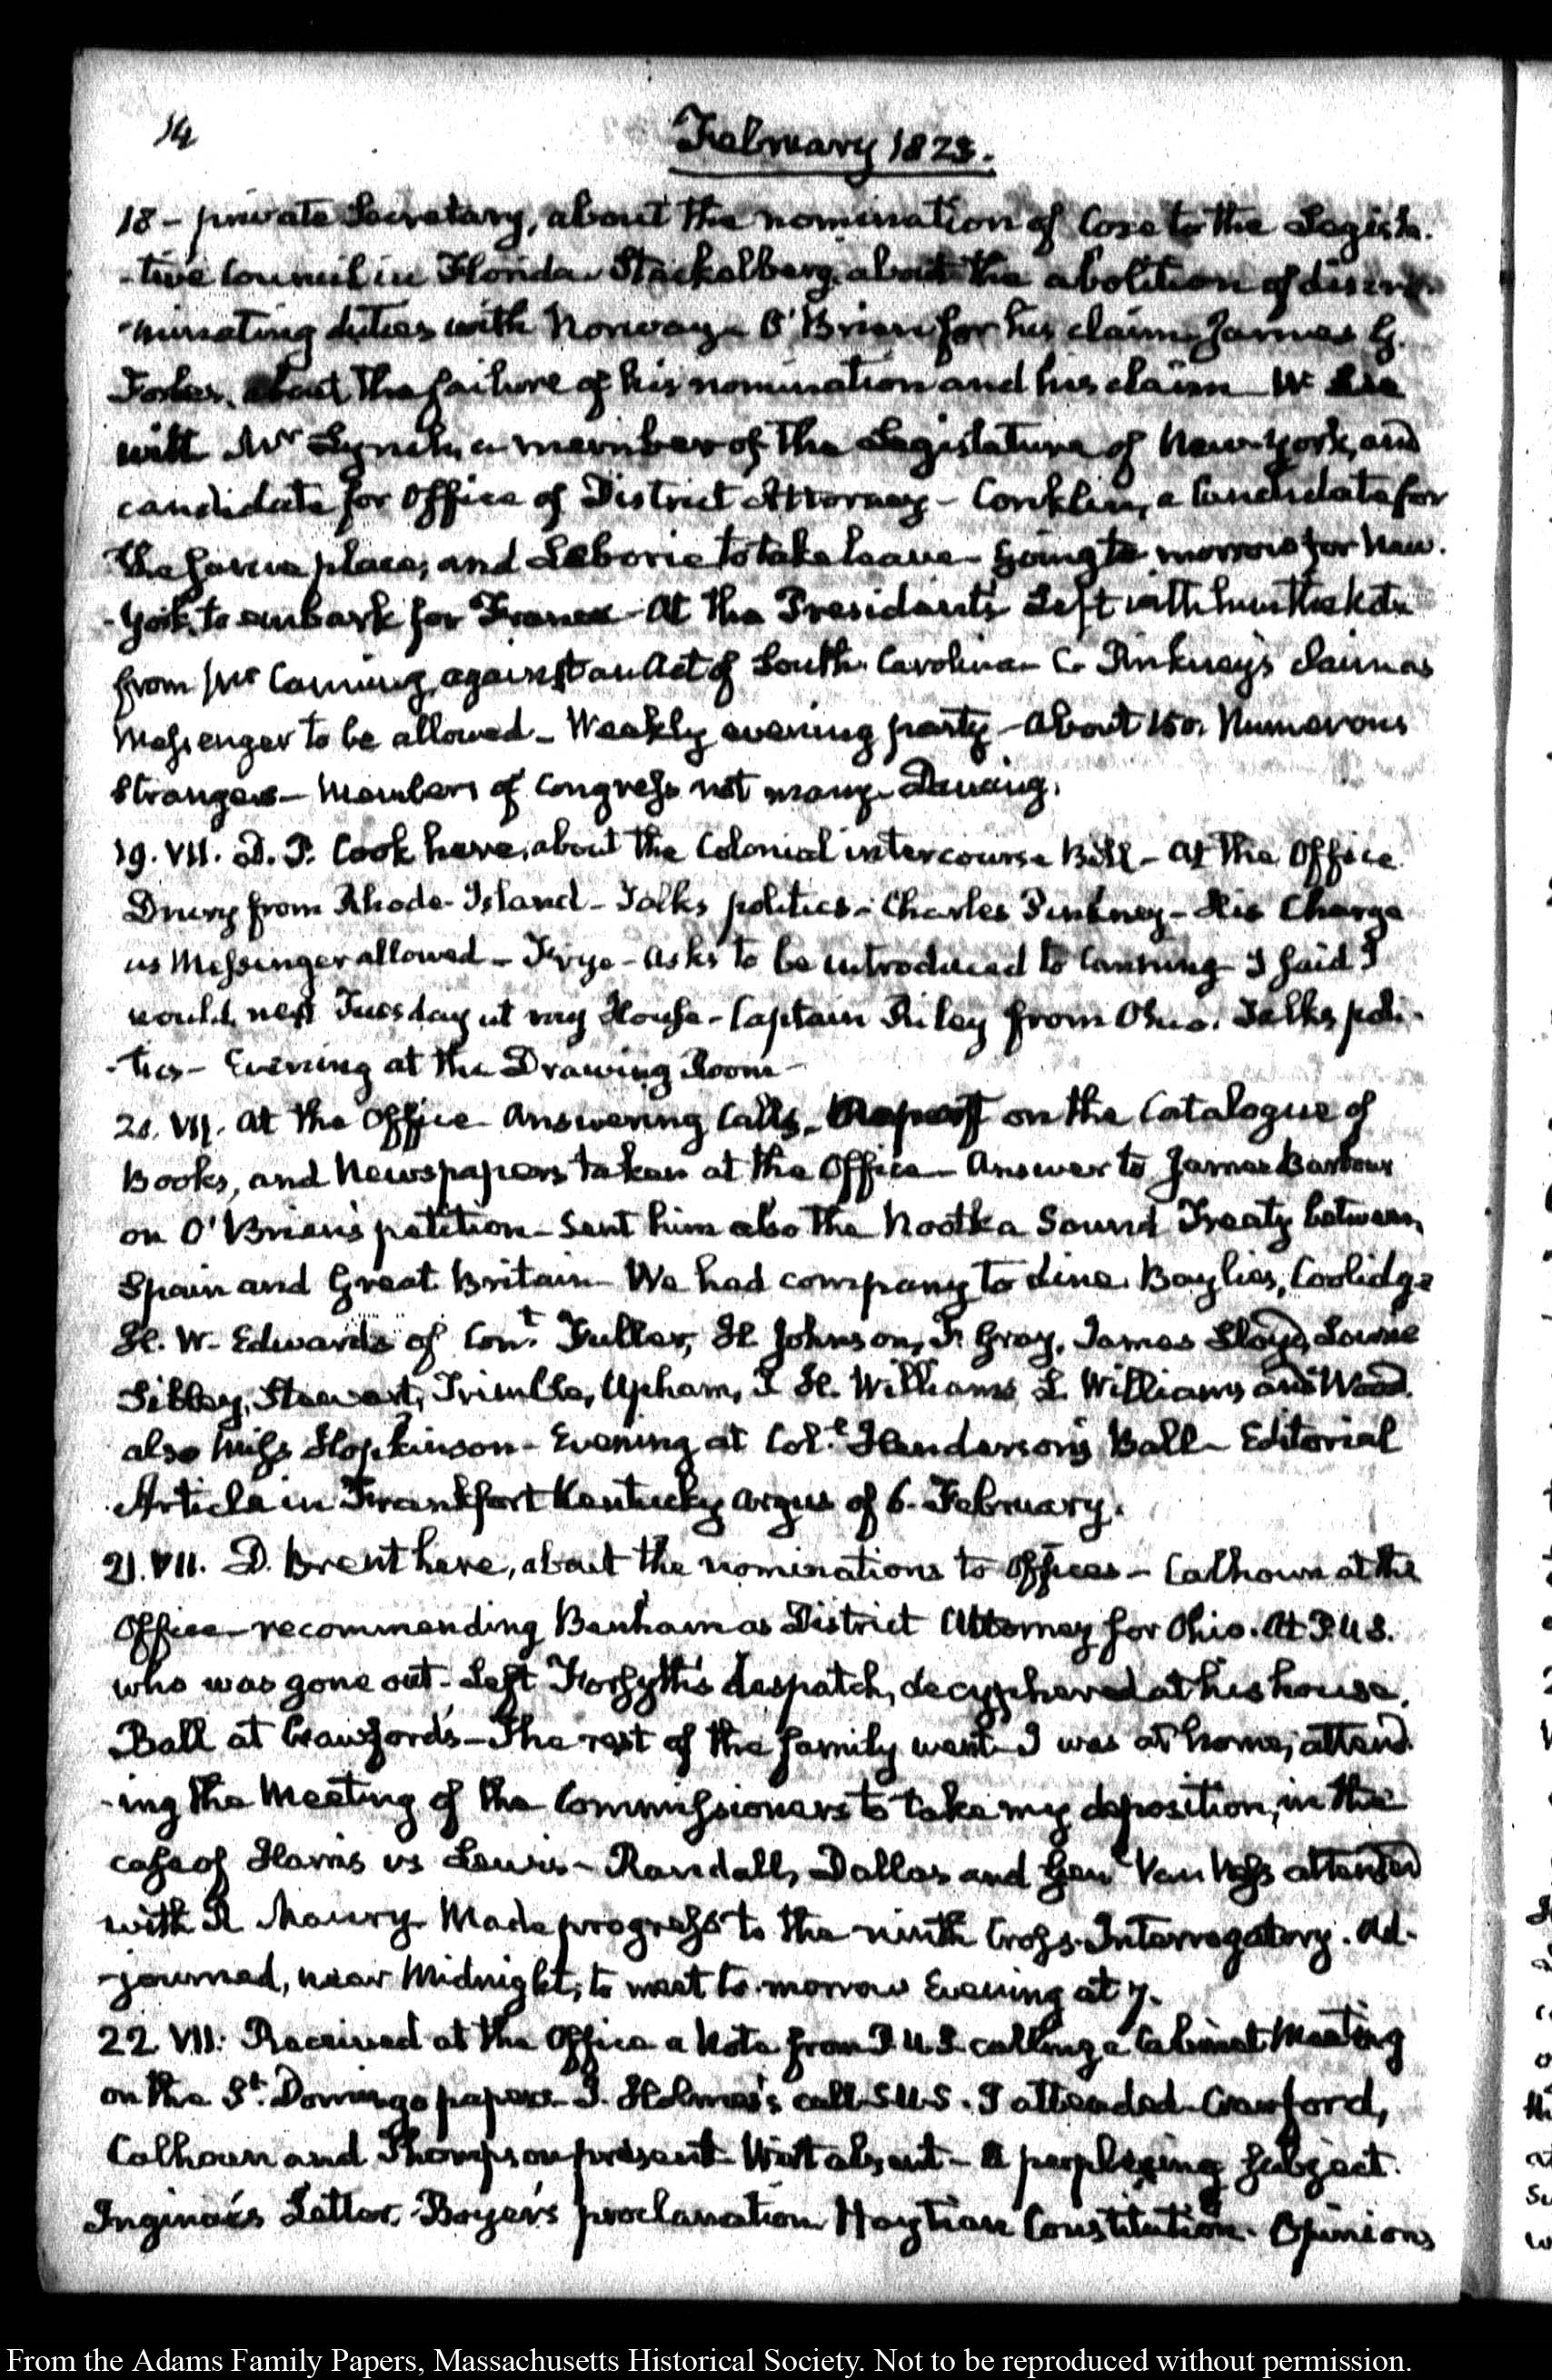 14
February 1823.
18 - private Secretary, about the nomination of Coxe to the Legisla-
-tive Council in Florida. Stackelberg about the abolition of discri-
-minating duties with Norway - O'Brien for his claim. James G.
Forbes, about the failure of his nomination and his claim - Mr Lee
with Mr Lynch, a member of the Legislature of New-York, and
candidate for Office of District Attorney - Conklin, a Candidate for
the same place; and Leborie to take leave - Going to morrow for New-
-York, to embark for France - At the President's Left with him the Note
from Mr Canning, against an Act of South Carolina - C. Pinkney's claim as
Messenger to be allowed - Weekly evening party - About 150. Numerous
Strangers - Members of Congress not many - Dancing.
19. VII. D. P. Cook here, about the Colonial intercourse Bill - At the Office
Drury from Rhode-Island - Talks politics - Charles Pinkney - His Charge
as Messenger allowed - Frye - Asks to be introduced to Canning - I said I
would, next Tuesday at my House - Captain Riley from Ohio. Talks poli-
-tics - Evening at the Drawing Room -
20. VII. At the Office - Answering Calls - Report on the Catalogue of
Books, and Newspapers taken at the Office - Answer to James Barbour
on O'Brien's petition - Sent him also the Nootka Sound Treaty between
Spain and Great Britain - We had company to dine. Baylies, Coolidge
H. W. Edwards of Cont. Fuller, H. Johnson, F. Gray, James Lloyd, Lowrie
Sibley, Stewart, Trimble, Upham, I. H. Williams L. Williams and Wood
also Miss Hopkinson - Evening at Col. Henderson's Ball - Editorial
Article in Frankfort Kentucky Argus of 6. February.
21. VII. D. Brent here, about the nominations to Offices - Calhoun at the
Office - recommending Benham as District Attorney for Ohio. At P.U.S.
who was gone out - Left Forsyth's despatch, decyphered at his house.
Ball at Crawford's - The rest of the family went - I was at home, attend
-ing the Meeting of the Commissioners to take my deposition, in the
case of Harris vs Lewis - Randall, Dallas and Genl Van Ness attended
with R Maury - Made progress to the ninth Cross-Interrogatory. Ad-
-journed, near Midnight, to meet to-morrow Evening at 7.
22 VII. Received at the Office a Note from P.U.S. calling a Cabinet Meeting
on the St. Domingo papers - J. Holmes's call S.U.S. I attended - Crawford,
Calhoun and Thompson present - Wirt absent - A perplexing subject.
Inginac's Letter. Boyer's proclamation Haytian Constitution. Opinions
From the Adams Family Papers, Massachusetts Historical Society. Not to be reproduced without permission.